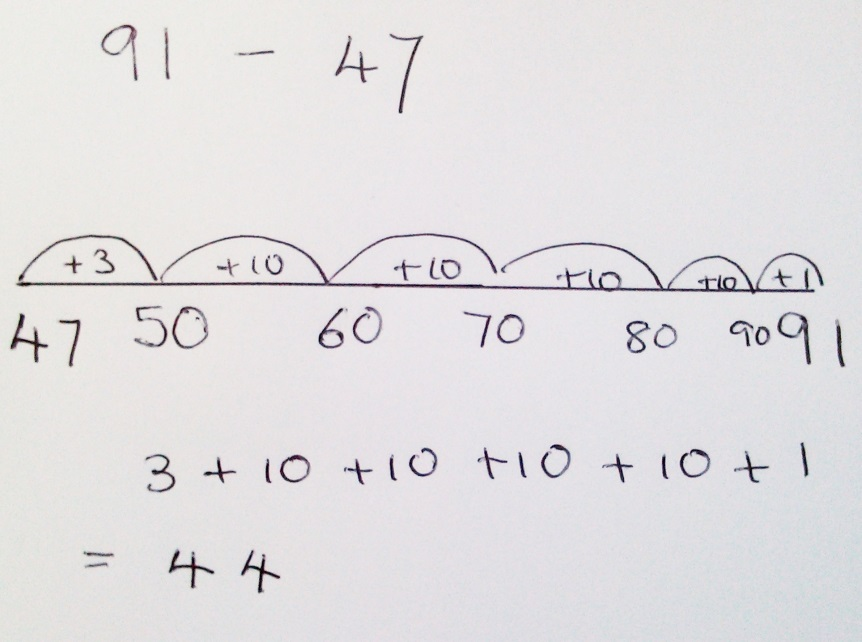 91 - 47
+3 +10 +10 +10 +10 +1
47 50 60 70 80 90 91
3 + 10 +10 +10 + 10 + 1
= 44